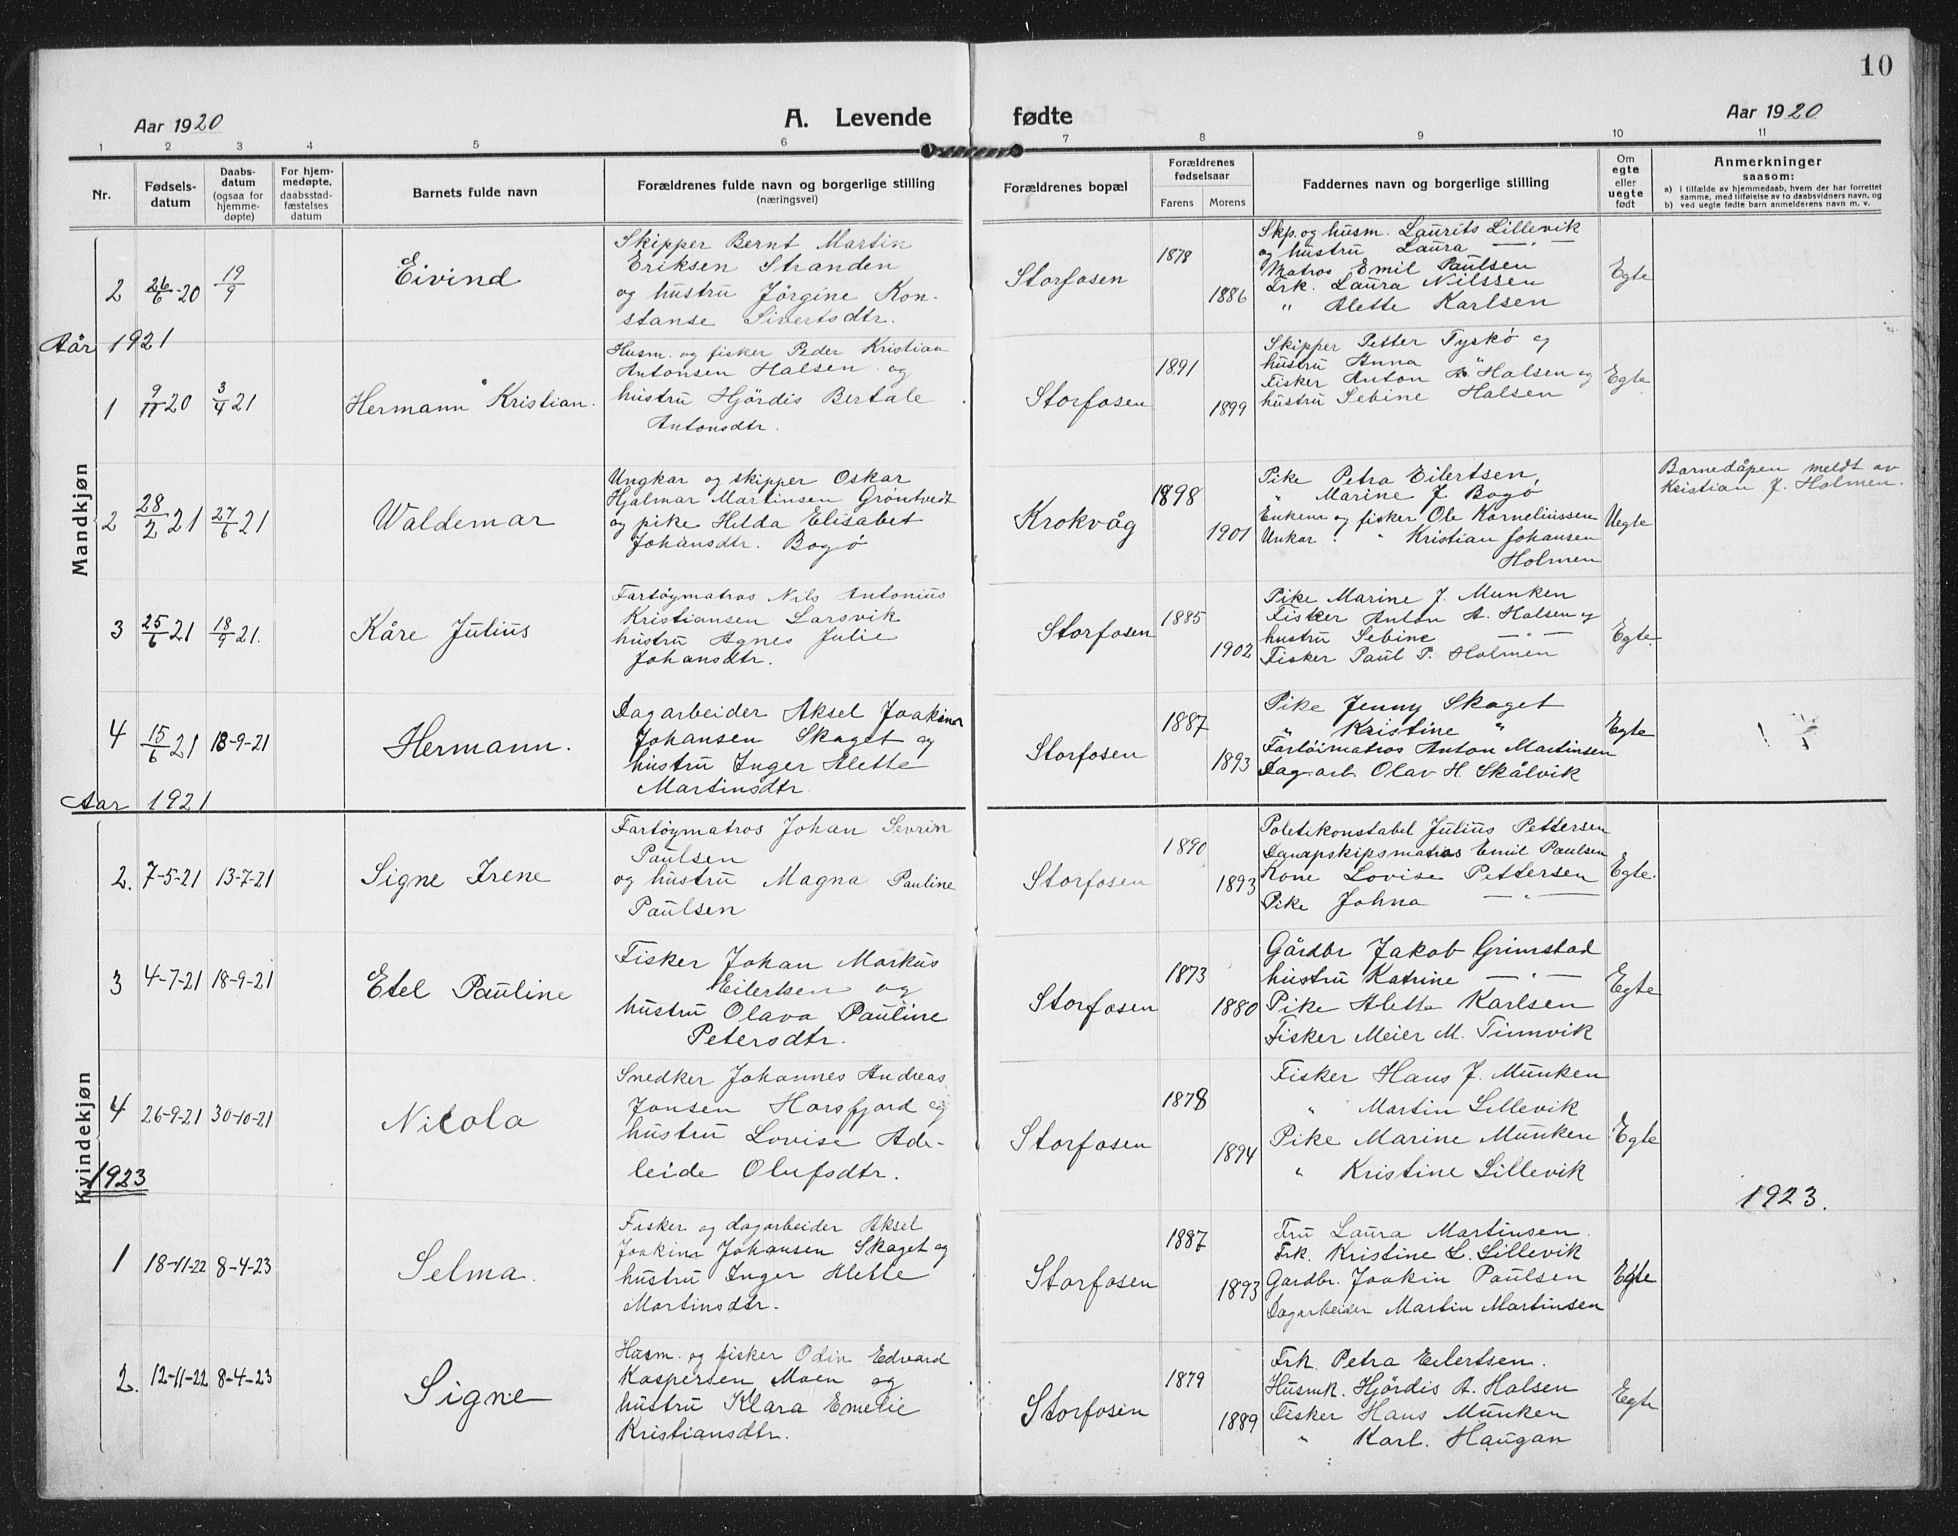 10
Aar 1920
A. Levende fødte
Aar 1920
1 2 3 4 5 6 7 8 9 10 11
Nr.
Fødsels-
datum
Daabs-
datum
(ogsaa for
hjemme-
døpte)
For hjem-
medøpte,
daabsstad-
fæstelses
datum
Barnets fulde navn
Forældrenes fulde navn og borgerlige stilling
(næringsvei)
Forældrenes bopæl
Forældrenes
fødselsaar
Farens Morens
Faddernes navn og borgerlige stilling
Om
egte
eller
uegte
født
Anmerkninger
saasom:
a) i tilfælde av hjemmedaab, hvem der har forrettet
samme, med tilføielse av to daabsvidners navn, og
b) ved uegte fødte barn anmelderens navn m. v.
Mandkjøn
2 26/6-20 19/9
Eivind
Skipper Bernt Martin
Eriksen Stranden
og hustru Jörgine Kon-
stanse Sivertsdtr.
Storfosen
1878
1886
Skp. og husm. Laurits Lillevik
og hustru Laura —"—
Matros Emil Paulsen
Frk. Laura Nilssen
" Alette Karlsen
Egte
Aar 1921
1 9/11 20 3/4 21
Hermann Kristian.
Husm. og fisker Peder Kristian
Antonsen Halsen og
hustru Hjördis Bertale
Antonsdtr.
Storfosen
1891
1899
Skipper Petter Tyskø og
hustru Anna "
Fisker Anton A. Halsen og
hustru Sebine Halsen
Egte
2 28/2 21 27/6 21
Waldemar
Ungkar og skipper Oskar
Hjalmar Martinsen Gröntvedt
og pike Hilda Elisabet
Johansdtr. Bogø
Krokvåg
1898
1901
Pike Petra Eilertsen,
" Marine J. Bogø
Enkem og fisker Ole Korneliussen
Unkar. " Kristian Johansen
Holmen
Uegte
Barnedåpen meldt av
Kristian J. Holmen.
3 25/6 21 18/9 21.
Kåre Julius
Fartöymatros Nils Antonius
Kristiansen Larsvik
hustru Agnes Julie
Johansdtr.
Storfosen
1885
1902
Pike Marine J. Munken
Fisker Anton A. Halsen og
hustru Sebine —"—
Fisker Paul P. Holmen
Egte.
4 15/6 21 18-9-21
Hermann.
Dagarbeider Aksel Joakim
Johansen Skaget og
hustru Inger Alette
Martinsdtr.
Storfosen
1887
1893
Pike Jenny Skaget
" Kristine "
Fartöimatros Anton Martinsen
Dagarb. Olav H. Skålvik
Egte
Aar 1921
Kvindekjøn
2. 7-5-21 13-7-21
Signe Irene
Fartöymatros Johan Sevrin
Paulsen
og hustru Magna Pauline
Paulsen
Storfosen
1890
1893
Poletikonstabel Julius Pettersen
Danapskipsmatros Emil Paulsen
Kone Lovise Pettersen
Pike Johna —"—
Egte.
3 4-7-21 18-9-21
Etel Pauline
Fisker Johan Markus
Eilertsen og
hustru Olava Pauline
Petersdtr.
Storfosen
1873
1880
Gårdbr Jakob Grimstad
hustru Katrine —"—
Pike Alette Karlsen
Fisker Meier M. Tinnvik
Egte
4 26-9-21 30-10-21
Nicola
Snedker Johannes Andreas
Jonsen Horsfjord og
hustru Lovise Ade-
leide Olufsdtr.
Storfosen
1878
1894
Fisker Hans J. Munken
" Martin Lillevik
Pike Marine Munken
" Kristine Lillevik
Egte
1923
1923.
1 18-11-22 8-4-23
Selma.
Fisker og dagarbeider Aksel
Joakim Johansen Skaget og
hustru Inger Alette
Martinsdtr.
Storfosen
1887
1893
Fru Laura Martinsen.
Frk. Kristine L. Lillevik
Gardbr. Joakin Paulsen
Dagarbeider Martin Martinsen
Egte
2. 12-11-22 8-4-23
Signe
Husm. og fisker Odin Edvard
Kaspersen Moen og
hustru Klara Emelie
Kristiansdtr.
Storfosen
1879
1889
Frk. Petra Eilertsen.
Husmk. Hjördis A. Halsen
Fisker Hans Munken
" Karl. Haugan
Egte